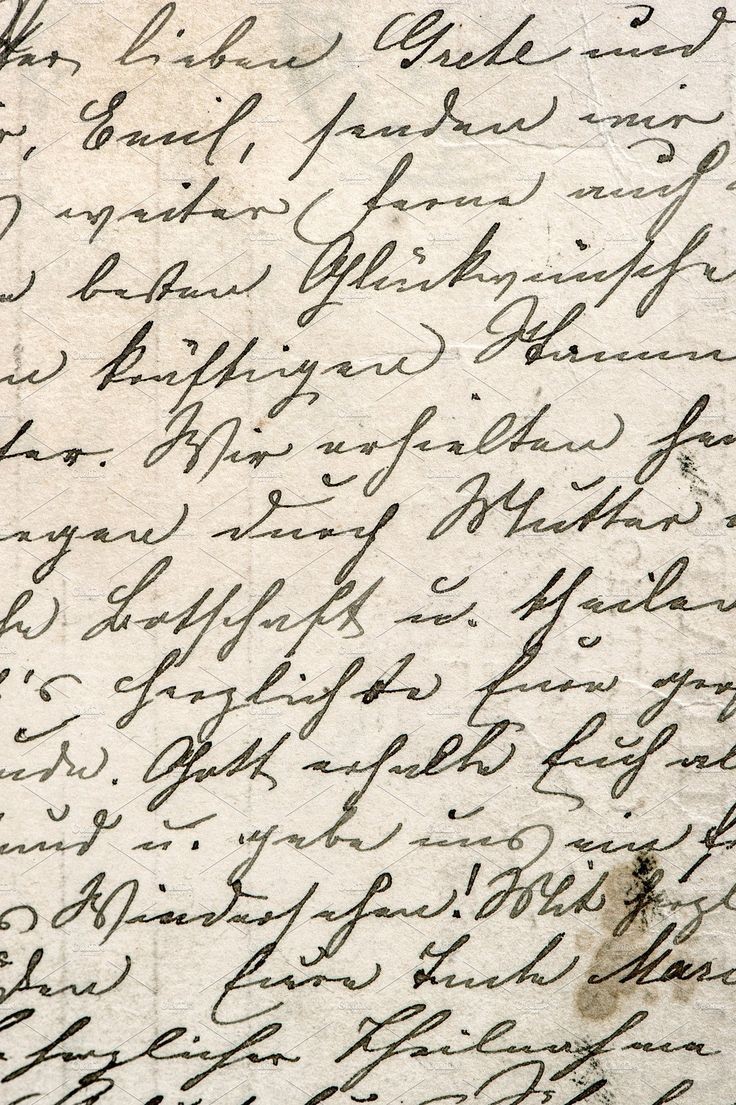 lieben Grete und
Emil, senden wir
weiter Ferne auch
besten Glückwünsche
kräftigen Stamm
Wir erhielten
durch Mutter
Botschaft u. theilen
's herzlichste Eure
Gott erhalte Euch
und u. gebe uns ein
Wiedersehen! Mit herzl
Eure Tante Mari
herzlicher Theilnahme